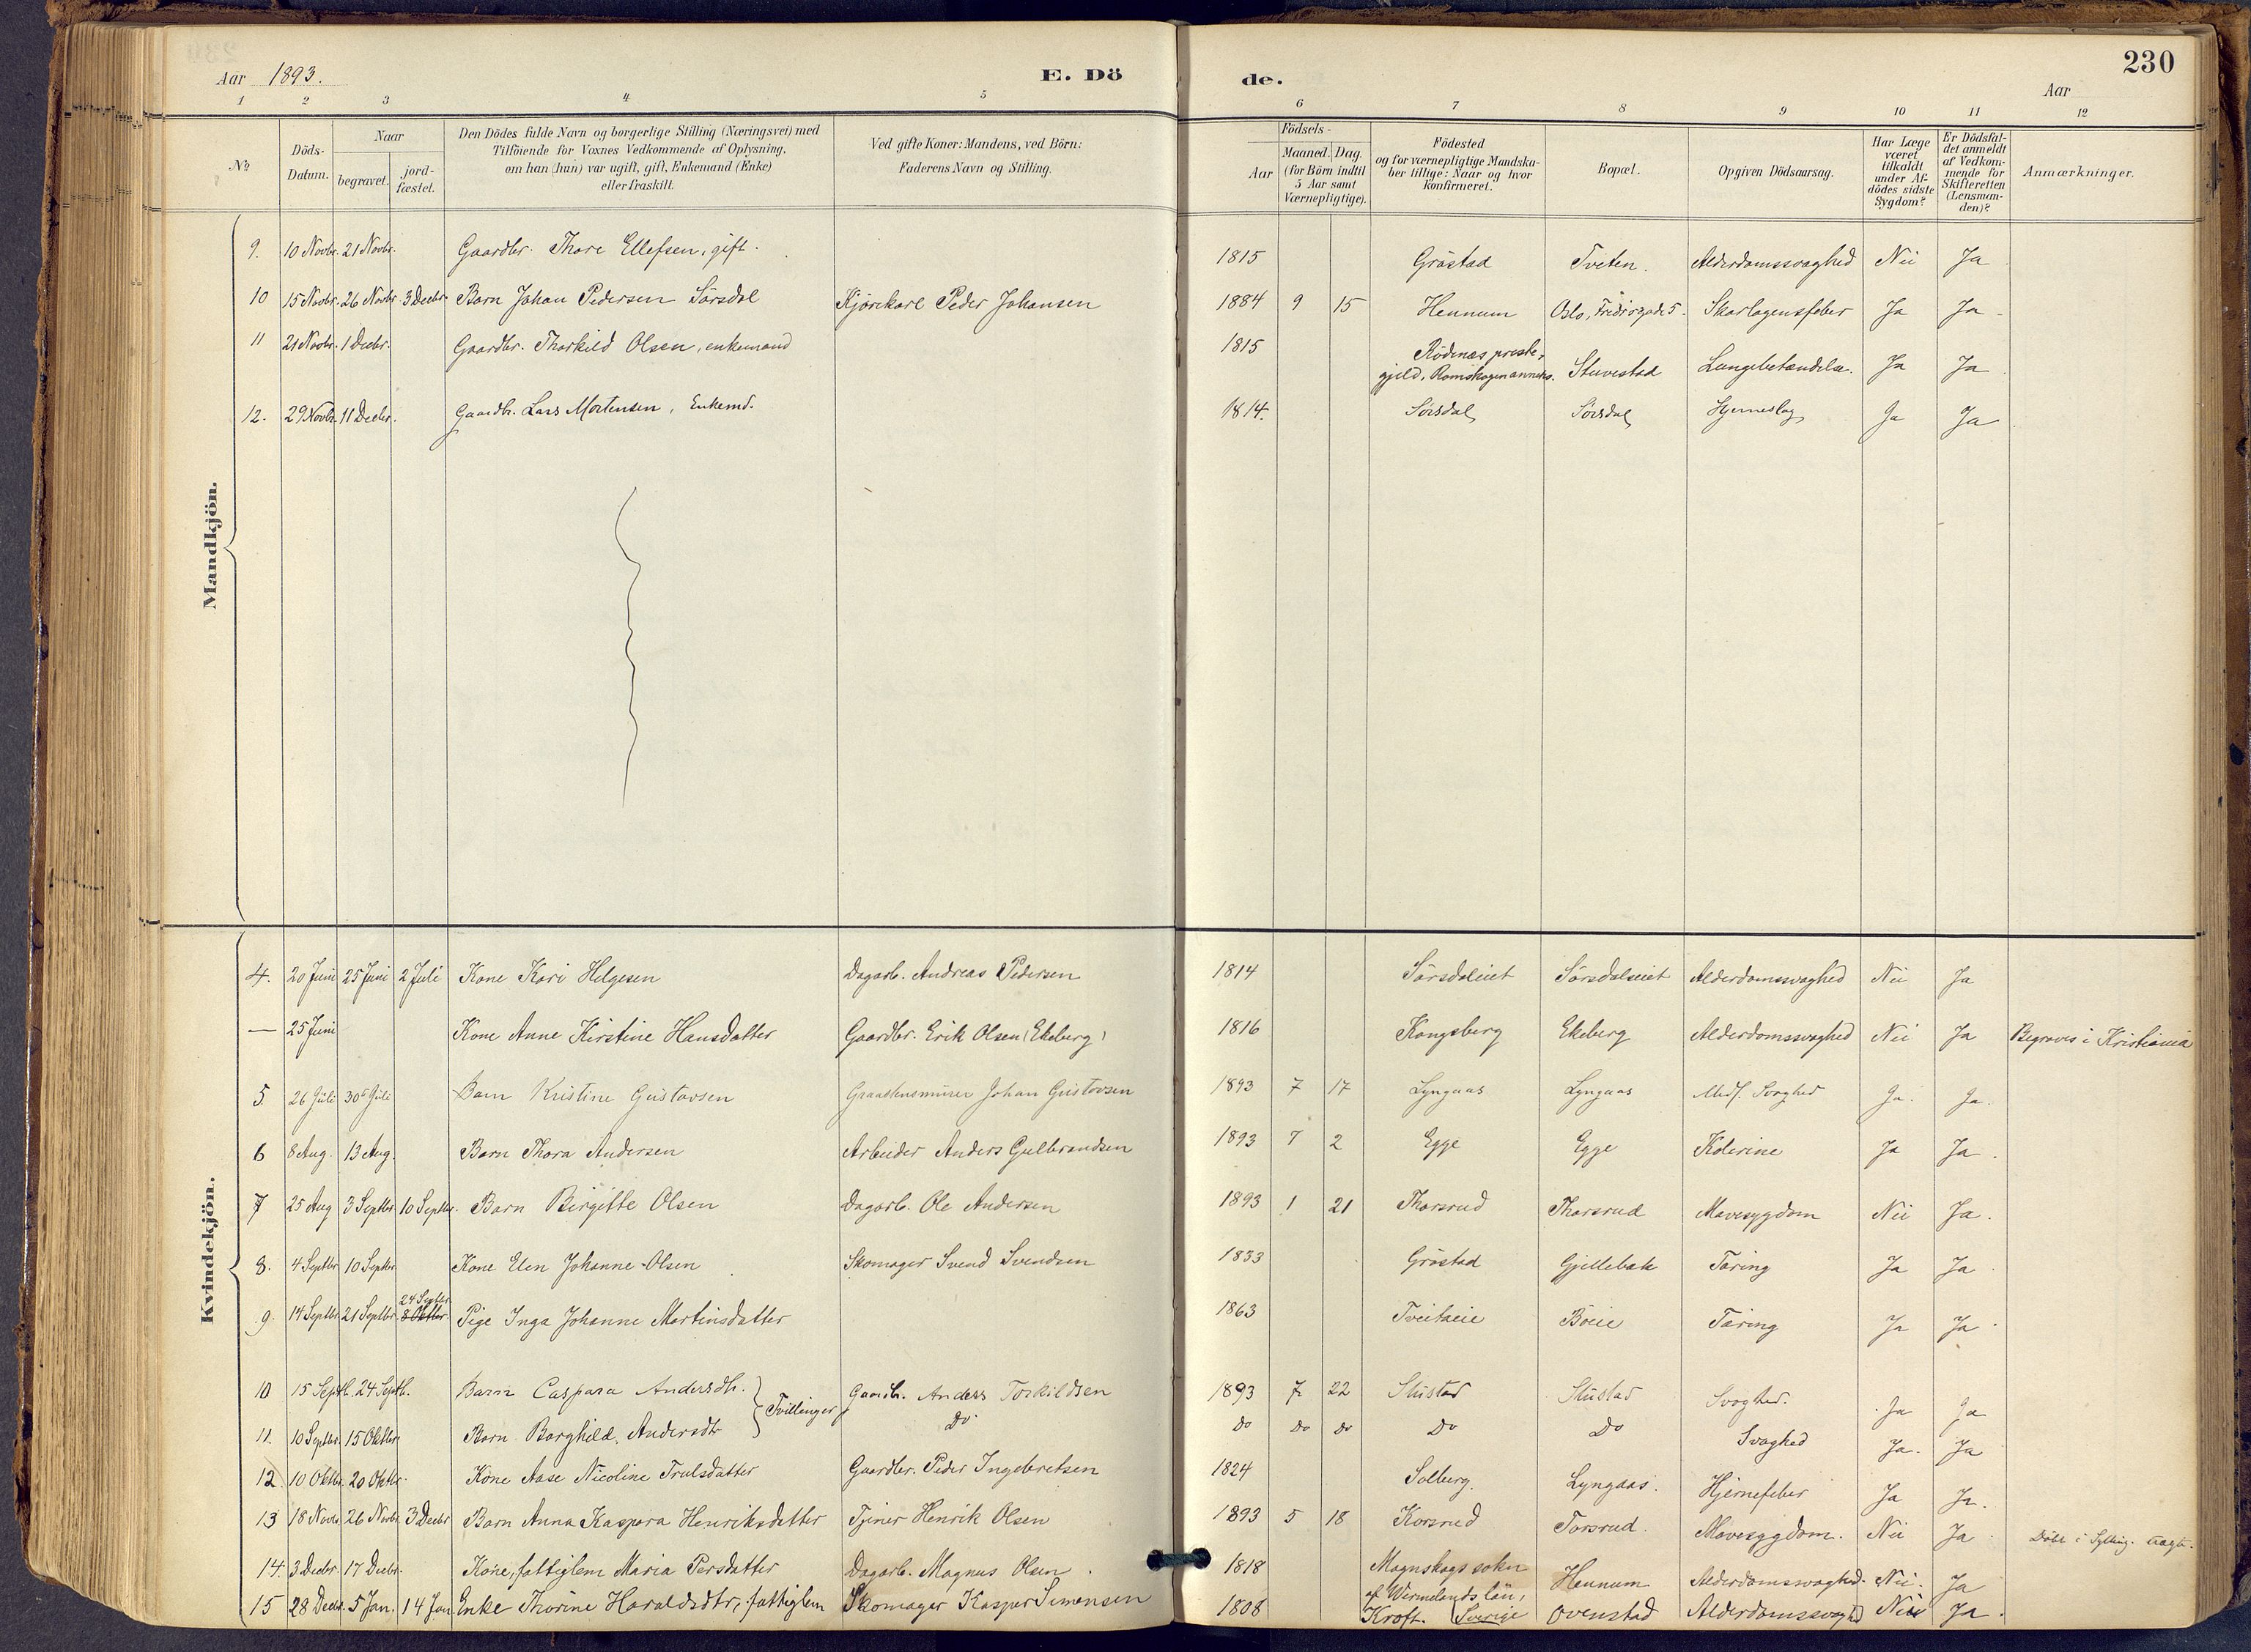 230
Aar 1893.
E. Döde.
Aar
1 2 3 4 5 6 7 8 9 10 11 12
No
Döds-Datum.
Naar
begravet.
jord-fæstet.
Den Dödes fulde Navn og borgerlige Stilling (Næringsvei) med
Tilföiende for Voxnes Vedkommende af Oplysning,
om han (hun) var ugift, gift, Enkemand (Enke)
eller fraskilt.
Ved gifte Koner: Mandens, ved Börn:
Faderens Navn og Stilling.
Födsels-
Aar
Maaned. Dag.
(for Börn indtil
5 Aar samt
Værnepligtige).
Födested
og for værnepligtige Mandska-
ber tillige: Naar og hvor
konfirmeret.
Bopæl.
Opgiven Dödsaarsag.
Har Læge
været
tilkaldt
under Af-
dödes sidste
Sygdom?
Er Dödsfal-
det anmeldt
af Vedkom-
mende for
Skifteretten
(Lensman-
den)?
Anmærkninger.
Mandkjön.
9. 10 Novbr. 21 Novbr. Gaardbr. Thore Ellefsen, gift. 1815 Gröstad Tveten. Alderdomssvaghed Nei Ja
10 15 Novbr. 26 Novbr 3 Decbr Barn Johan Pedersen Sörsdal Kjörekarl Peder Johansen 1884 9 15 Hennum Oslo, 5. Skarlagensfeber Ja Ja
11 21 Novbr. 1 Decbr. Gaardbr. Thorkild Olsen, enkemand 1815 Rödenæs preste-
gjeld, Romskogen anneks. Stuvestad Lungebetændelse. Ja Ja
12. 29 Novbr. 11 Decbr. Gaardbr. Lars Mortensen, Enkemd. 1814. Sörsdal Sörsdal Hjerneslag Ja Ja
Kvindekjön.
4. 20 Juni 25 Juni 2 Juli Kone Kari Helgesen Dagarb. Andreas Pedersen 1814 Sörsdaleiet Sörsdalseiet Alderdomssvaghed Nei Ja
— 25 Juni Kone Anne Kirstine Hansdatter Gaardbr. Erik Olsen (Ekeberg) 1816 Kongsberg Ekeberg Alderdomssvaghed Nei Ja Begraves i Kristiania
5. 26 Juli 30 Juli Barn Kristine Gustavsen Graastensmurer Johan Gustavsen 1893 7 17 Lyngaas Lyngaas Medf. Svaghed Ja. Ja.
6 8 Aug. 13 Aug. Barn Thora Andersen Arbeider Anders Gulbrandsen 1893 7 2 Egge Egge Kolerine Ja Ja.
7 25 Aug 3 Septbr 10 Septbr. Barn Birgitte Olsen Dagarb. Ole Andersen 1893 1 21 Thorsrud Thorsrud Mavesygdom Nei Ja.
8. 4 Septbr 10 Septbr. Kone Elen Johanne Olsen Skomager Svend Svendsen 1833 Gröstad Gjellebæk Tæring Ja Ja.
24 Septbr.
9. 14 Septbr 21 Septbr 8 Oktbr. Pige Inga Johanne Martinsdatter 1863 Tveitaeie Böeie Tæring Ja Ja.
10 15 Septb. 24 Septb. Barn Caspara Andersdtr. Tvillinger Gaardbr. Anders Torkildsen 1893 7 22 Stustad Stustad Svaghed. Ja Ja
11. 10 Septbr. 15 Oktbr Barn Borghild Andersdtr Do. Do Do Do Do Do Svaghed Ja. Ja
12. 10 Oktbr. 20 Oktbr. Kone Aase Nicoline Trulsdatter Gaardbr. Peder Ingebretsen 1824 Solberg. Lyngaas. Hjernefeber Ja Ja.
13 18 Novbr. 26 Novbr. 3 Decbr Barn Anna Kaspara Henriksdatter Tjener Henrik Olsen 1893 5 18 Korsrud Torsrud. Mavesygdom. Nei Ja Döbt i Sylling.
14. 3 Decbr. 17 Decbr. Kone, fattiglem Maria Persdatter Dagarb. Magnus Olsen 1818 Magnskogs sokn
af Wermelands län, Sverige Hennum Alderdomssvaghed. Nei. Ja
15 28 Decbr. 5 Jan. 14 Jan Enke Thorine Haraldsdtr, fattiglem Skomager Kasper Simensen 1808 Kroft. Ovenstad Alderdomssvaghed Nei Ja.